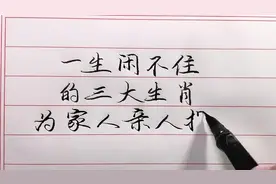 一生闲不住
的三大生肖
为家人亲人